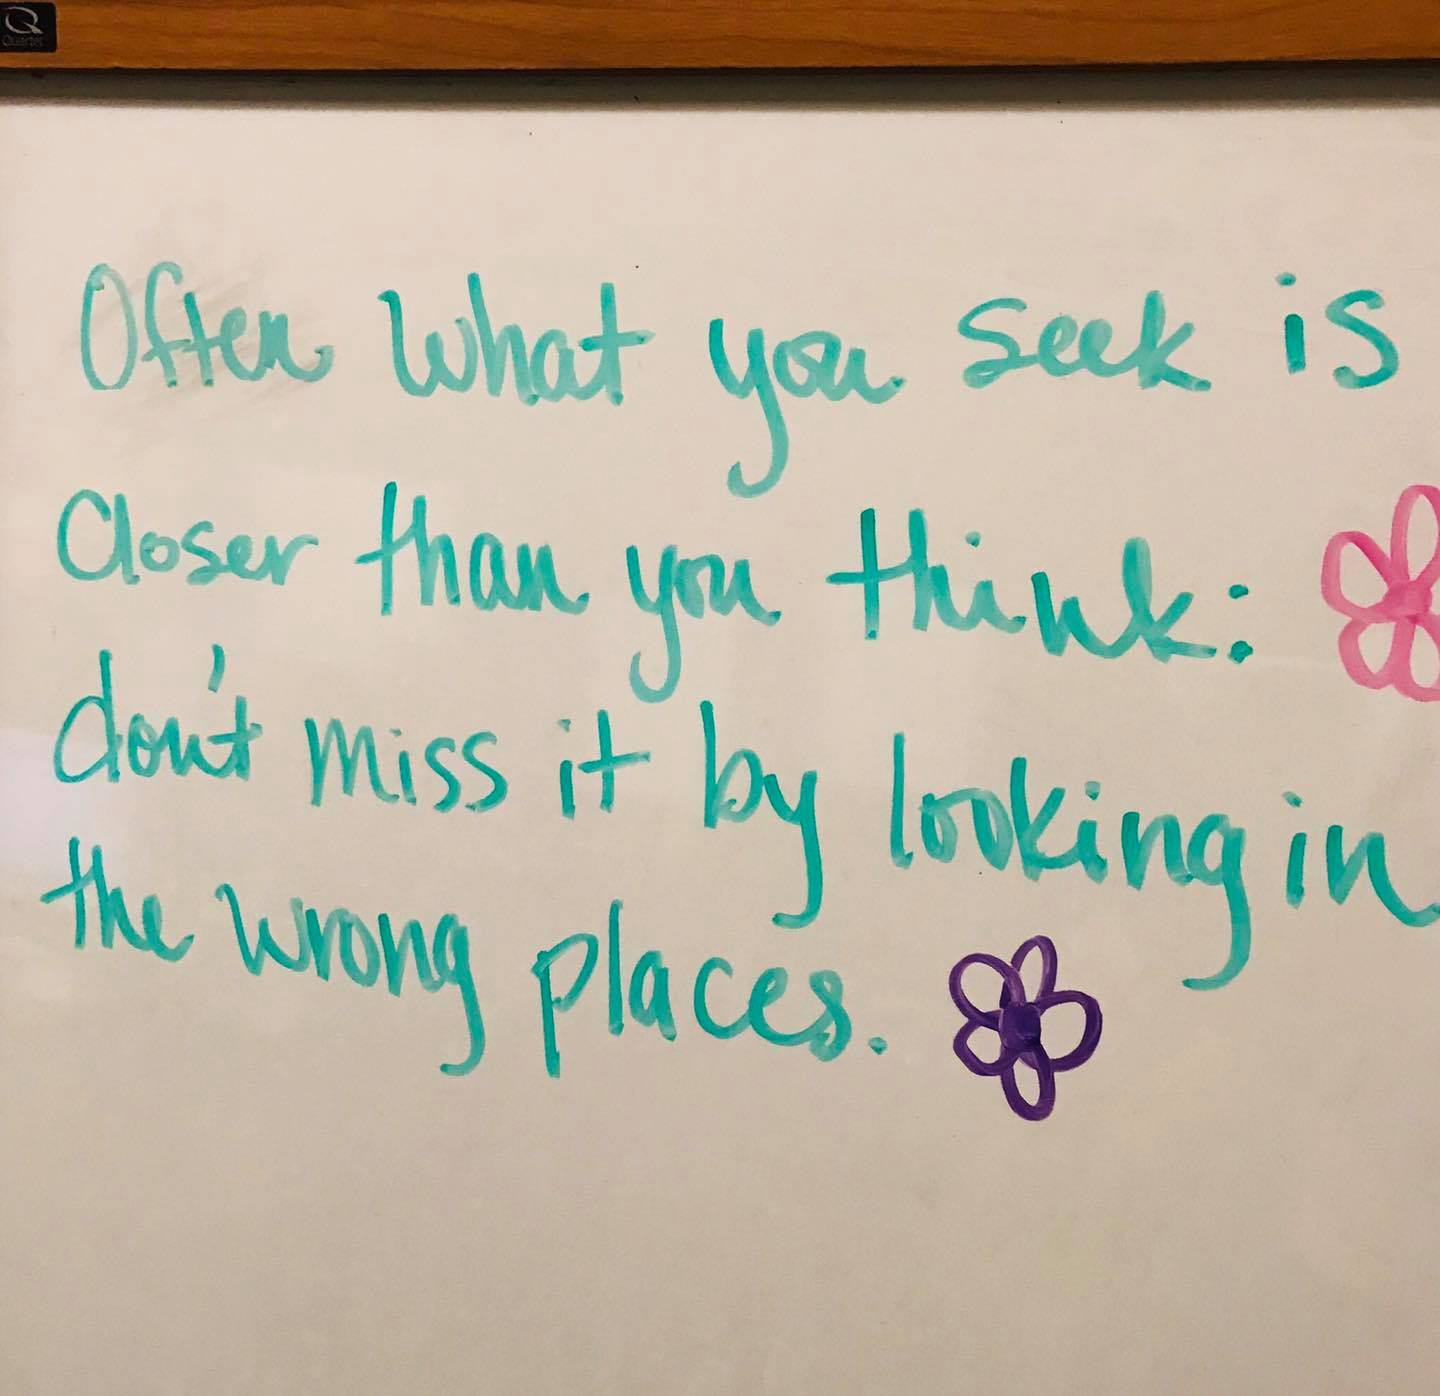 Quartet
Often what you seek is
closer than you think:
don't miss it by looking in
the wrong places.